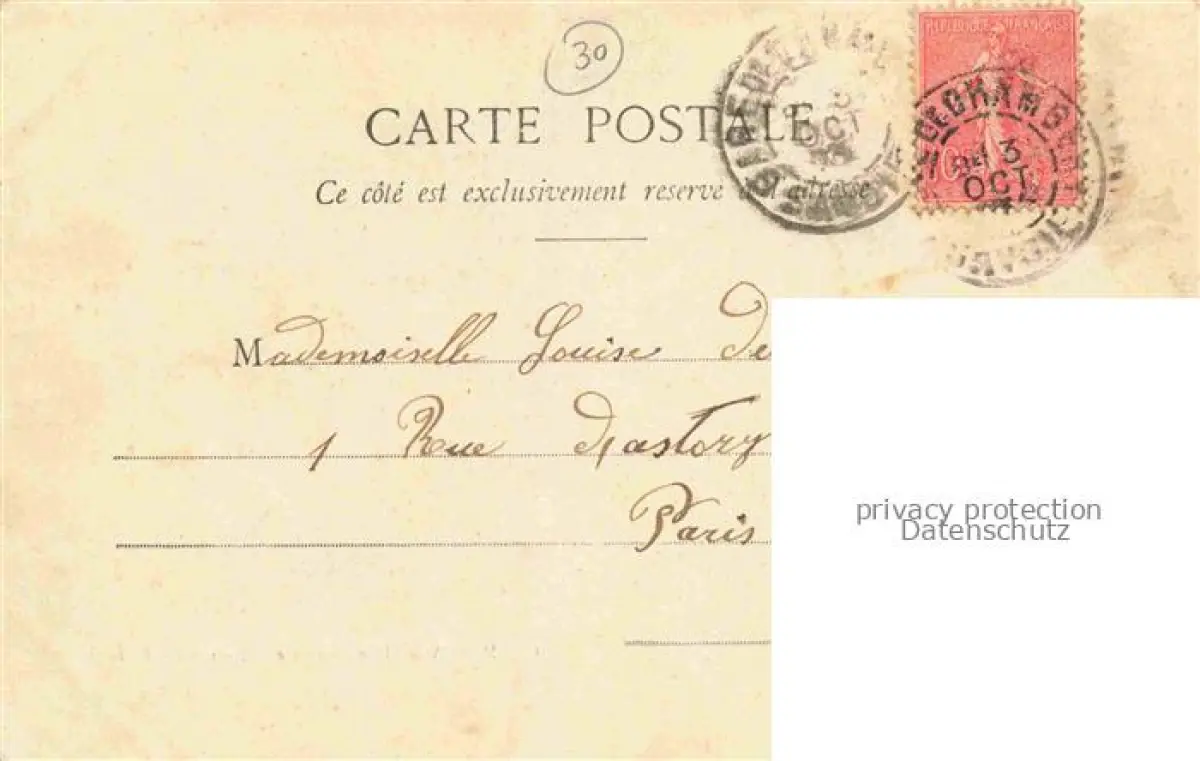 30
CARTE POSTALE
Ce côté est exclusivement reserve à l'adresse
REPUBLIQUE FRANÇAISE
GARE DE CHAMBE
3
OCT
SAVOIE
Mademoiselle Louise De
1 Rue Dastory
Paris
privacy protection
Datenschutz